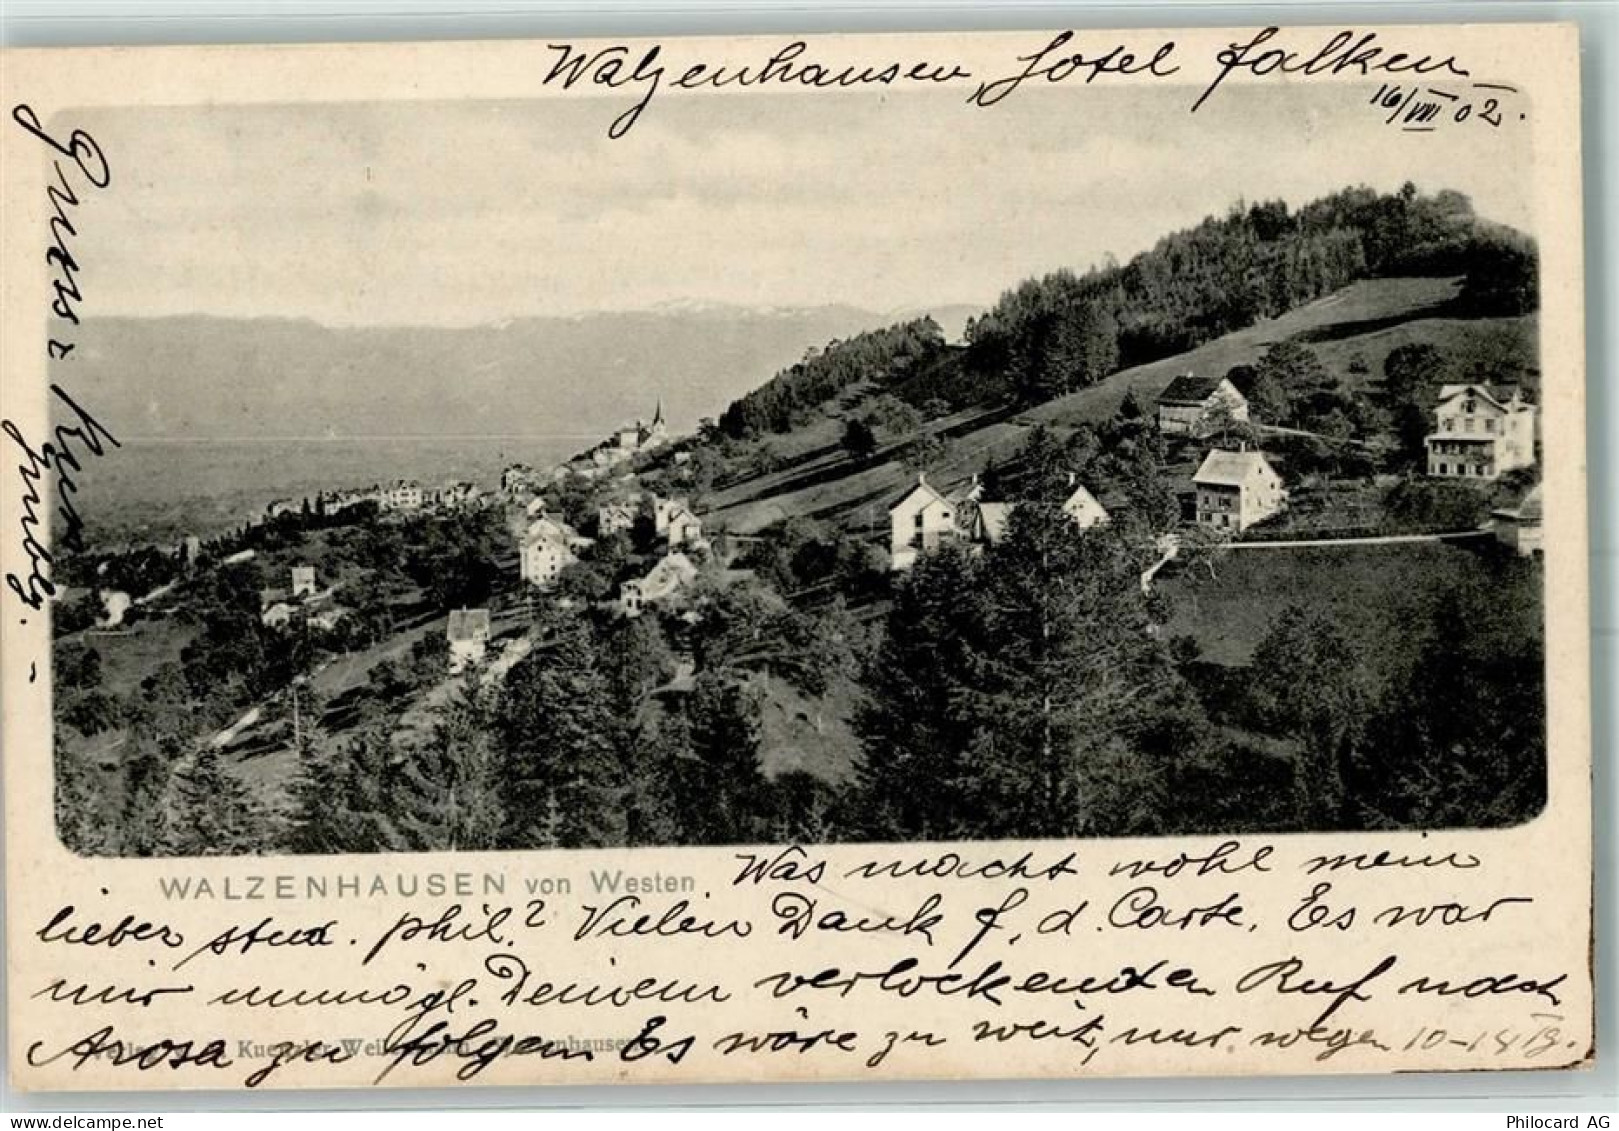 Walzenhausen, Hotel Falken
16/VIII 02.
Gruss & Kuss
WALZENHAUSEN von Westen
Was macht wohl mein
lieber stud. phil.? Vielen Dank f. d. Carte. Es war
mir unmögl. Deinem verlockenden Ruf nach
Arosa zu folgen. Es wäre zu weit, nur wegen 10-14 Tg.
Philocard AG